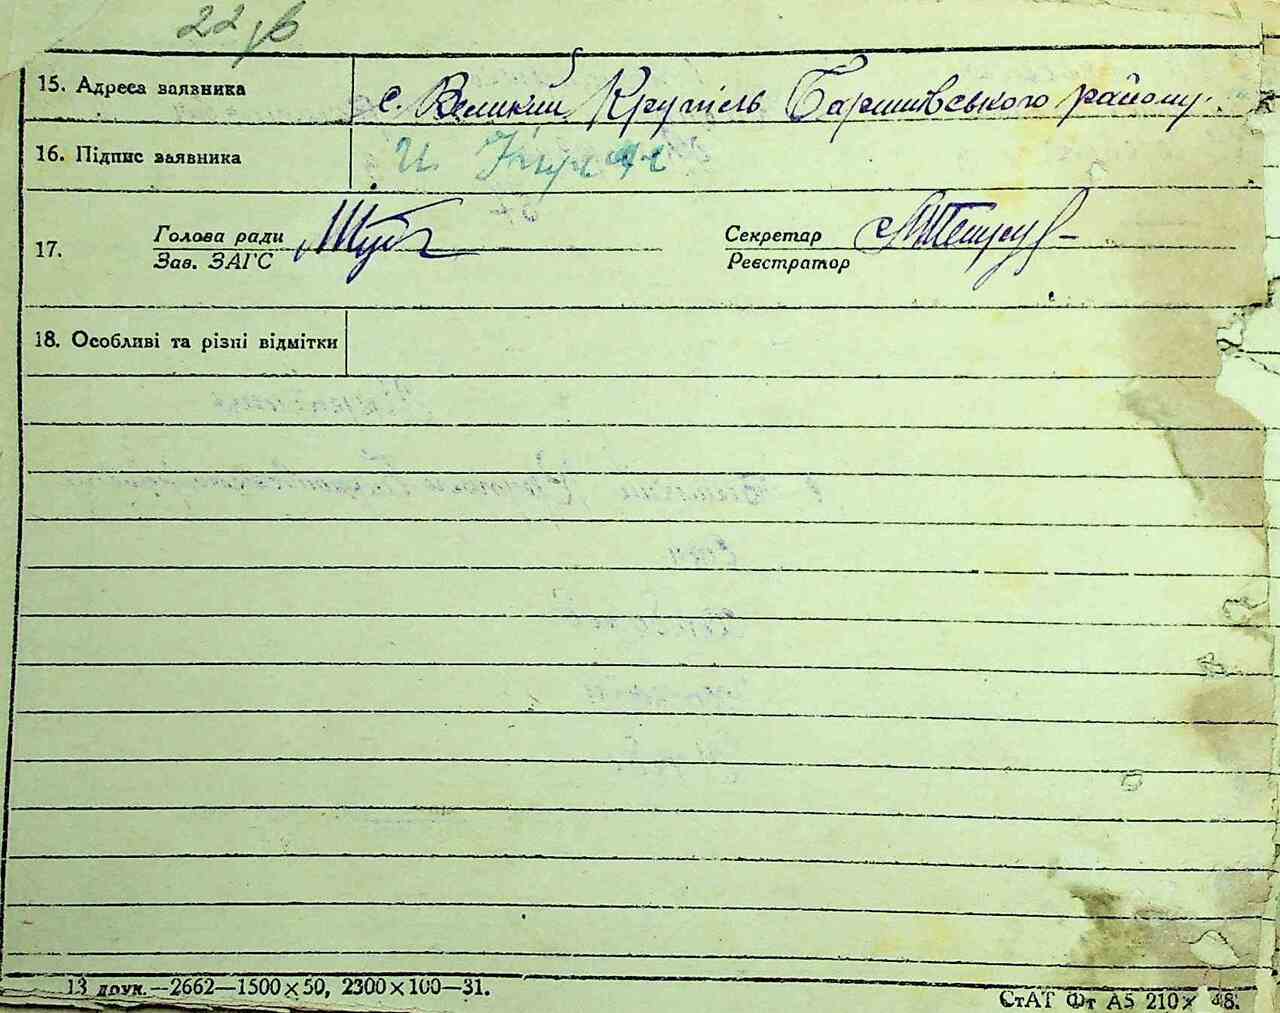 22 зв
15. Адреса заявника с. Великий Крупіль Баришівського району.
16. Підпис заявника И
17. Голова ради Секретар
Зав. ЗАГС Реєстратор
18. Особливі та різні відмітки
13 друк.—2662—1500×50, 2300×100—31.
СтАТ Фт А5 210× 48.